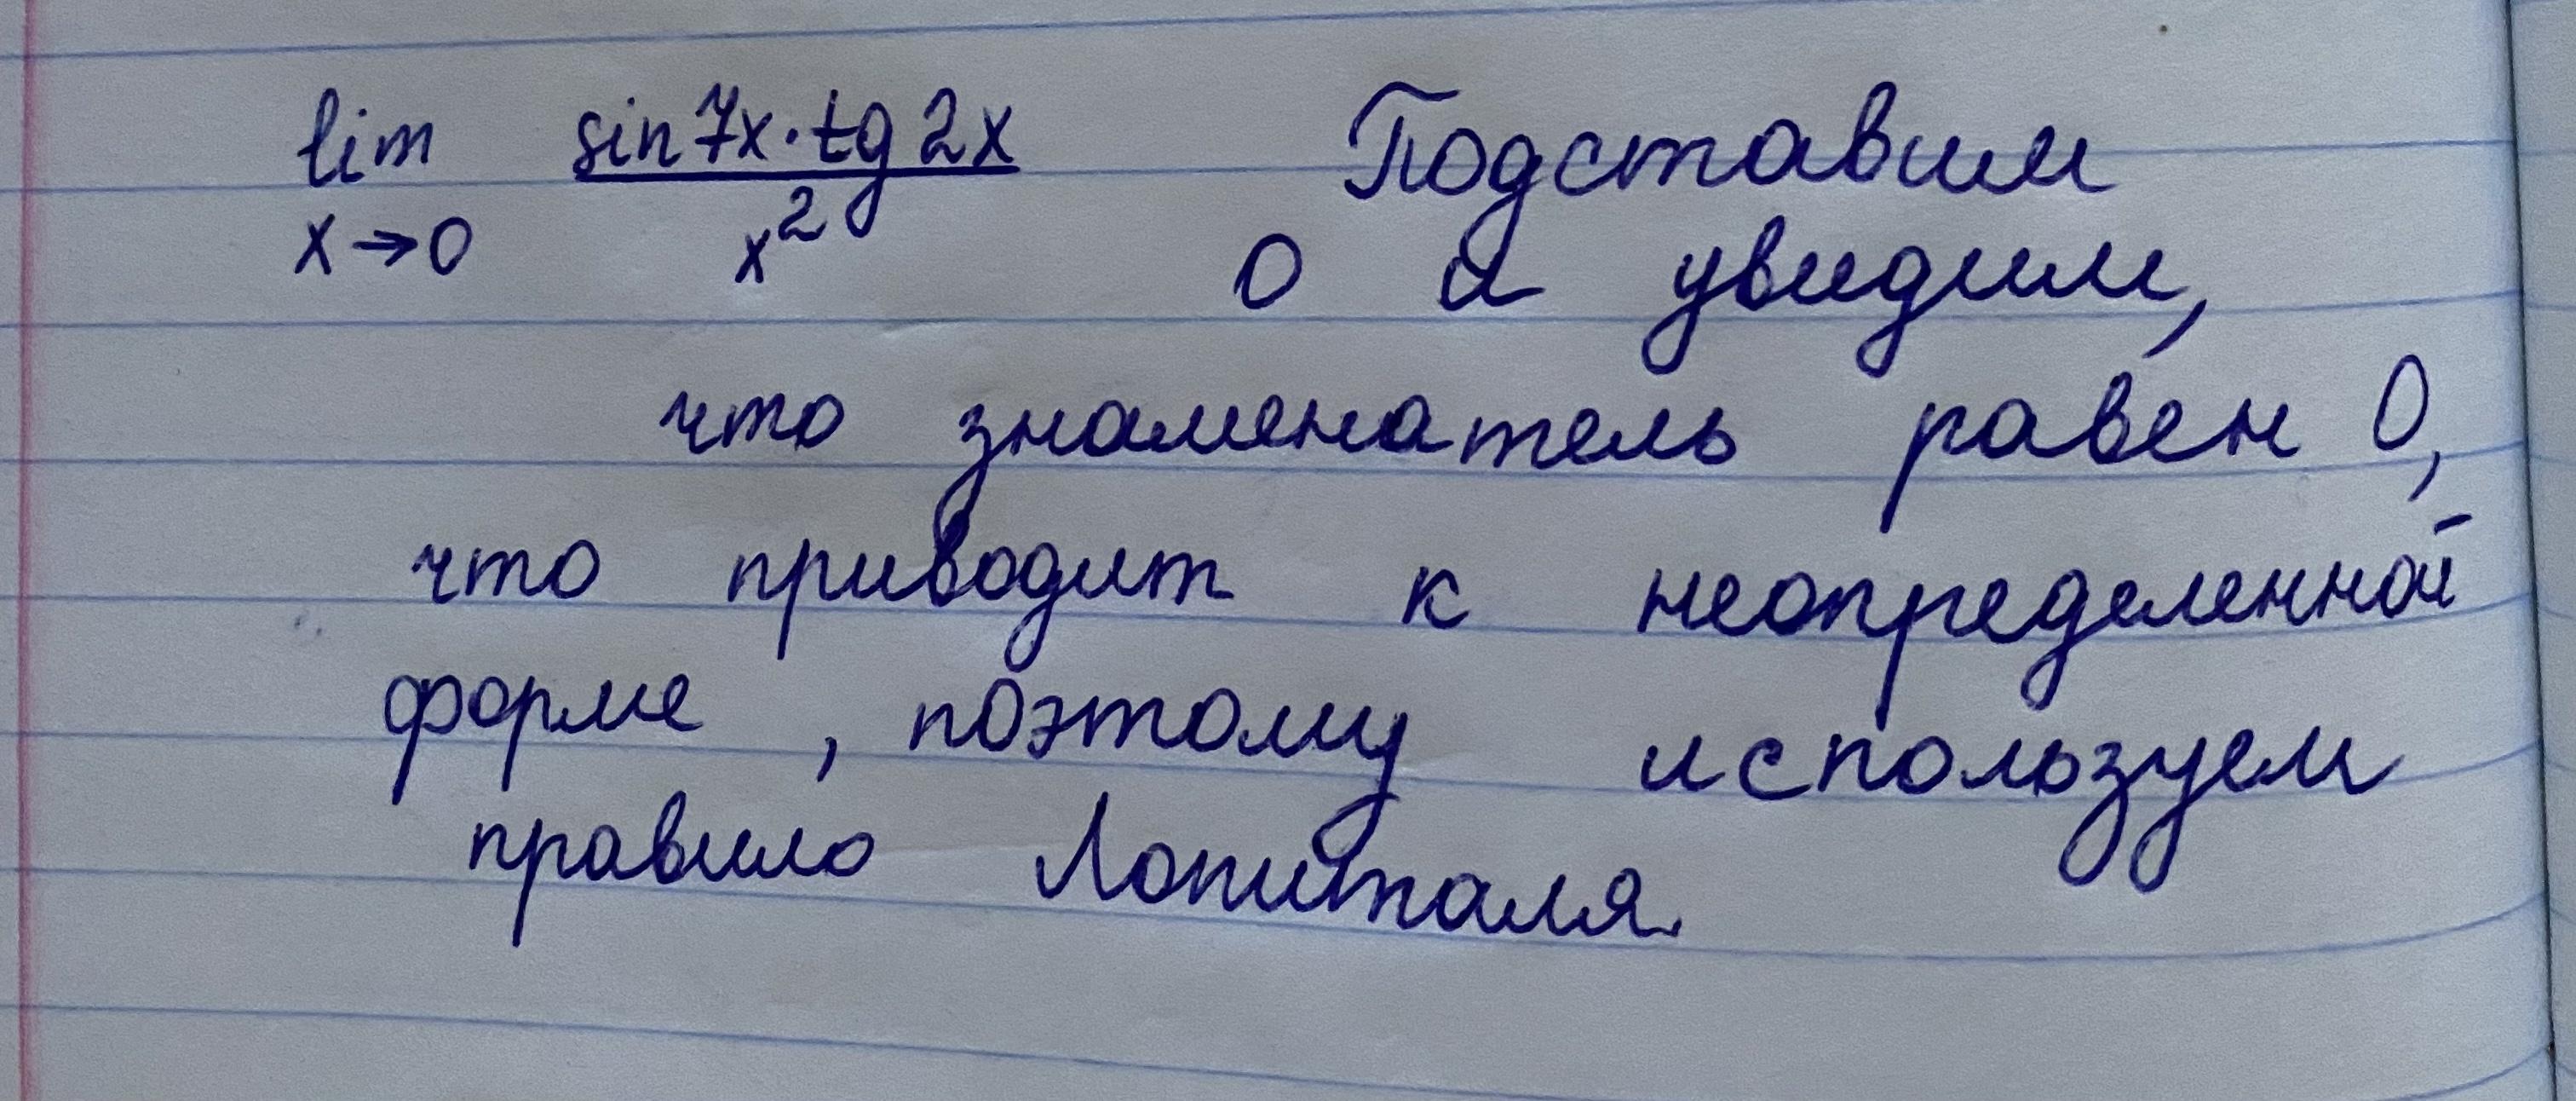 lim sin7x·tg2x Подставим
x→0 x² 0 и увидим,
что знаменатель равен 0,
что приводит к неопределенной
форме, поэтому используем
правило Лопиталя.